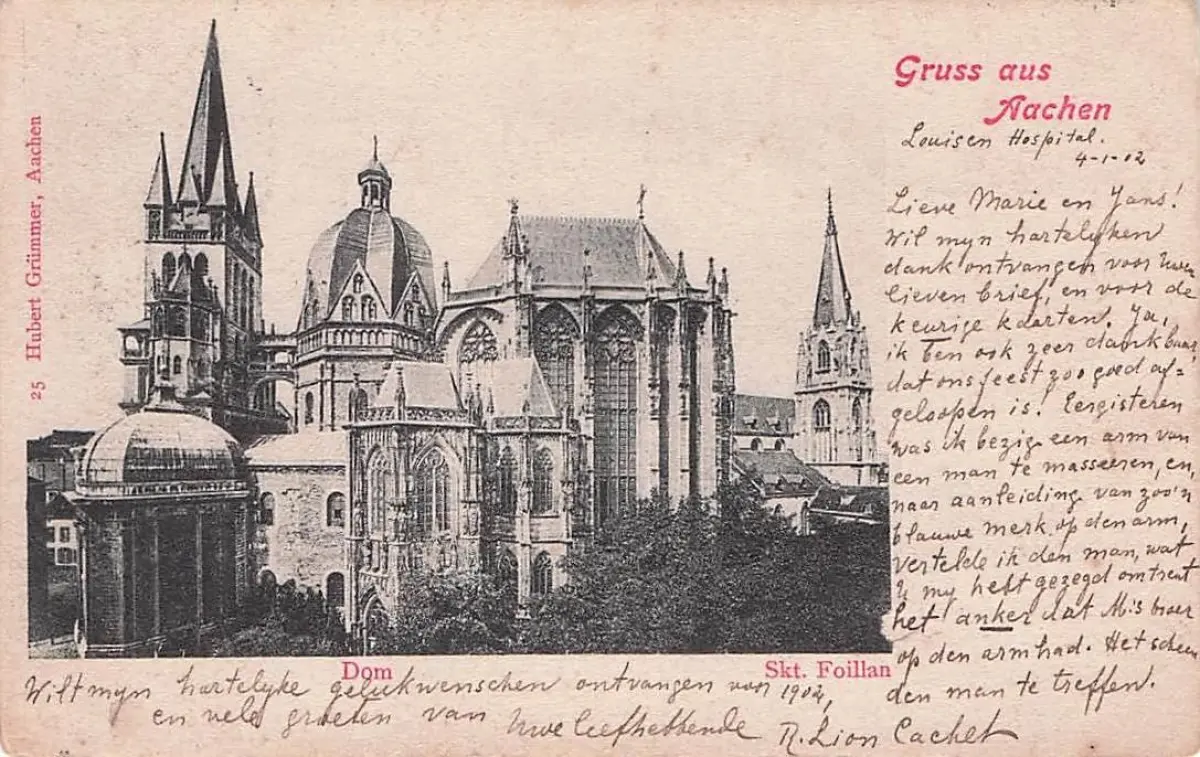 Gruss aus
Aachen
25 Hubert Grümmer, Aachen
Louisen Hospital.
4-1-02
Lieve Marie en Jans!
Wil myn hartelyken
dank ontvangen voor Uwen
lieven brief, en voor de
keurige kaarten. Ja,
ik ben ook zeer dankbaar
dat ons feest zoo goed af=
geloopen is! Eergisteren
was ik bezig een arm van
een man te masseeren, en
naar aanleiding van zoo'n
blauwe merk op den arm,
vertelde ik den man, wat
U my hebt gezegd omtrent
het anker dat M's broer
op den arm had. Het scheen
den man te treffen.
Dom
Skt. Foillan
Wilt myn hartelyke gelukwenschen ontvangen voor 1902,
en vele groeten van Uwe liefhebbende R. Lion Cachet